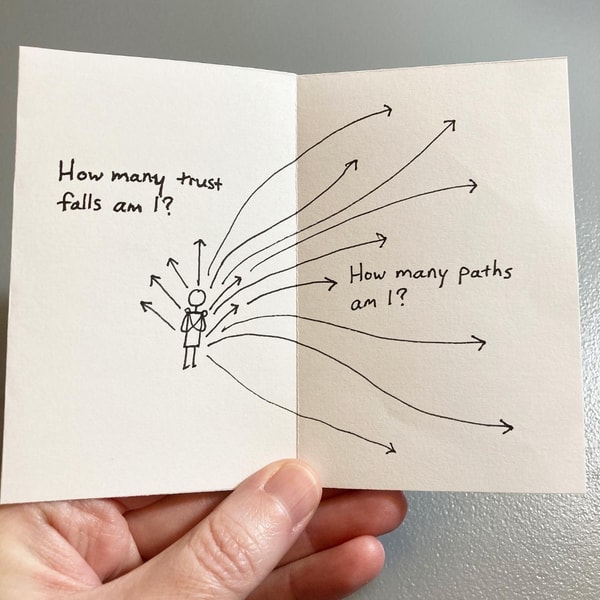 How many trust
falls am I?
How many paths
am I?